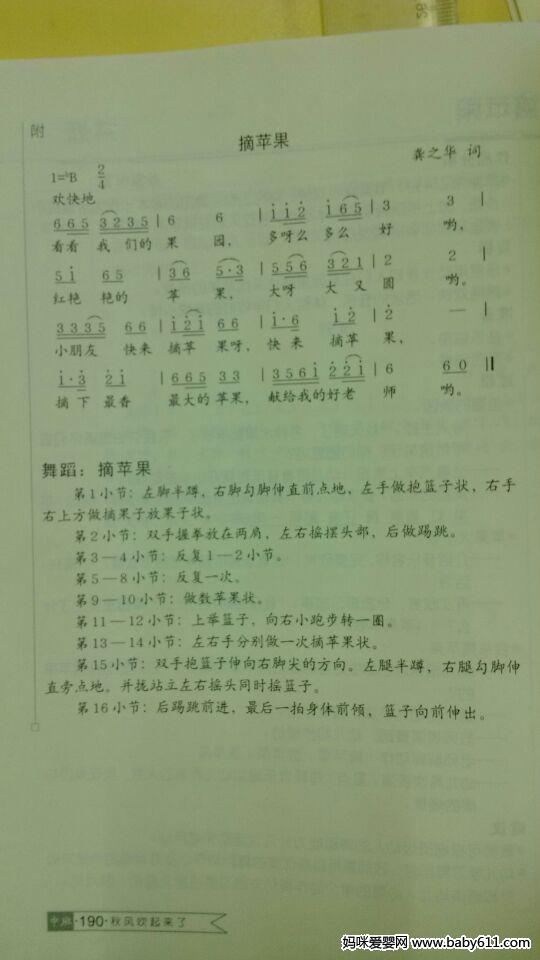 附
摘苹果
龚之华 词
1=♭B 2/4
欢快地
6 6 5 3 2 3 5 | 6 6 | i i 2 i 6 5 | 3 3 |
看看 我 们的 果 园, 多呀么 多么 好 哟,
5 i 6 5 | 3 6 5·3 | 5 5 6 3 2 1 | 2 2 |
红艳 艳的 苹 果, 大呀 大 又 圆 哟。
3 3 3 5 6 6 | i 2 i 6 6 | i·6 i 2 | 2 — |
小朋友 快来 摘苹 果呀, 快 来 摘苹 果,
i·3 2 i | 6 6 5 3 3 | 3 5 6 i 2 2 i | 6 6 0 ‖
摘 下 最香 最大的 苹果, 献给我的好老 师 哟。
舞蹈:摘苹果
第1小节:左脚半蹲,右脚勾脚伸直前点地,左手做抱篮子状,右手
右上方做摘果子放果子状。
第2小节:双手握拳放在两肩,左右摇摆头部,后做踢跳。
第3—4小节:反复1—2小节。
第5—8小节:反复一次。
第9—10小节:做数苹果状。
第11—12小节:上举篮子,向右小跑步转一圈。
第13—14小节:左右手分别做一次摘苹果状。
第15小节:双手抱篮子伸向右脚尖的方向。左腿半蹲,右腿勾脚伸
直旁点地。并拢站立左右摇头同时摇篮子。
第16小节:后踢跳前进,最后一拍身体前倾,篮子向前伸出。
中班·190·秋风吹起来了
妈咪爱婴网 www.baby611.com